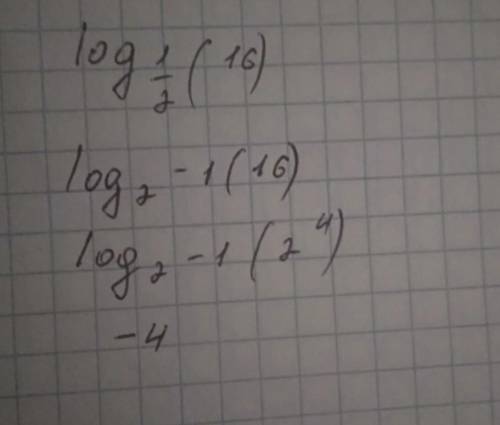 log 1/2 (16)
log₂ -1 (16)
log₂ -1 (2⁴)
-4